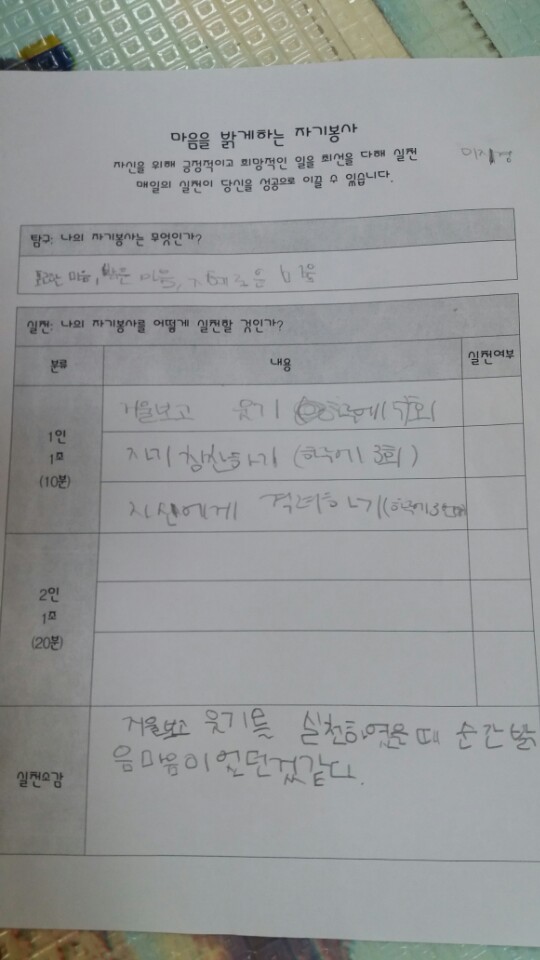 마음을 밝게하는 자기봉사
자신을 위해 긍정적이고 희망적인 일을 최선을 다해 실천
매일의 실천이 당신을 성공으로 이끌 수 있습니다.
탐구: 나의 자기봉사는 무엇인가?
마음, 밝은 마음, 지혜로운 마음
실천: 나의 자기봉사를 어떻게 실천할 것인가?
분류 내용 실천여부
거울보고 웃기 하루에 5회
1인
1조
(10분)
자기 칭찬하기 (하루에 3회)
자신에게 격려하기 (하루에 3
2인
1조
(20분)
실천소감
거울보고 웃기를 실천하였을 때 순간 밝
음마음이었던것같다.